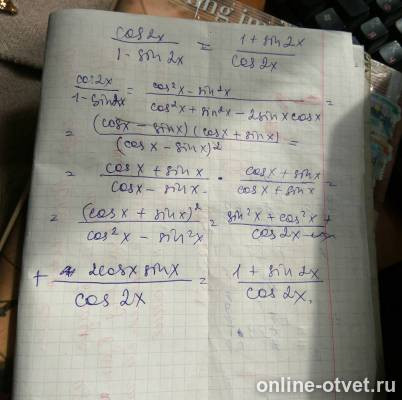 cos2x / 1 - sin 2x = 1 + sin2x / cos2x
cos2x / 1 - sin2x = cos²x - sin²x / cos²x + sin²x - 2sinx cosx =
= (cosx - sinx)(cosx + sinx) / (cosx - sinx)² =
= cosx + sinx / cosx - sinx · cosx + sinx / cosx + sinx =
= (cosx + sinx)² / cos²x - sin²x = sin²x + cos²x + / cos2x
+ 2cosx sinx / cos2x = 1 + sin2x / cos2x.
online-otvet.ru